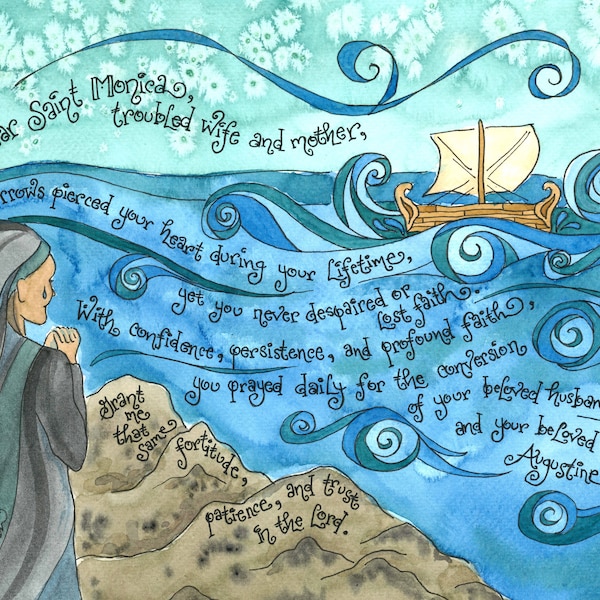 Saint Monica,
troubled wife and mother,
pierced your heart during your lifetime,
yet you never despaired or
lost faith.
With confidence, persistence, and profound faith,
you prayed daily for the conversion
of your beloved
and your beloved
Augustine
Grant
me
that
same
fortitude,
patience, and trust
in the Lord.